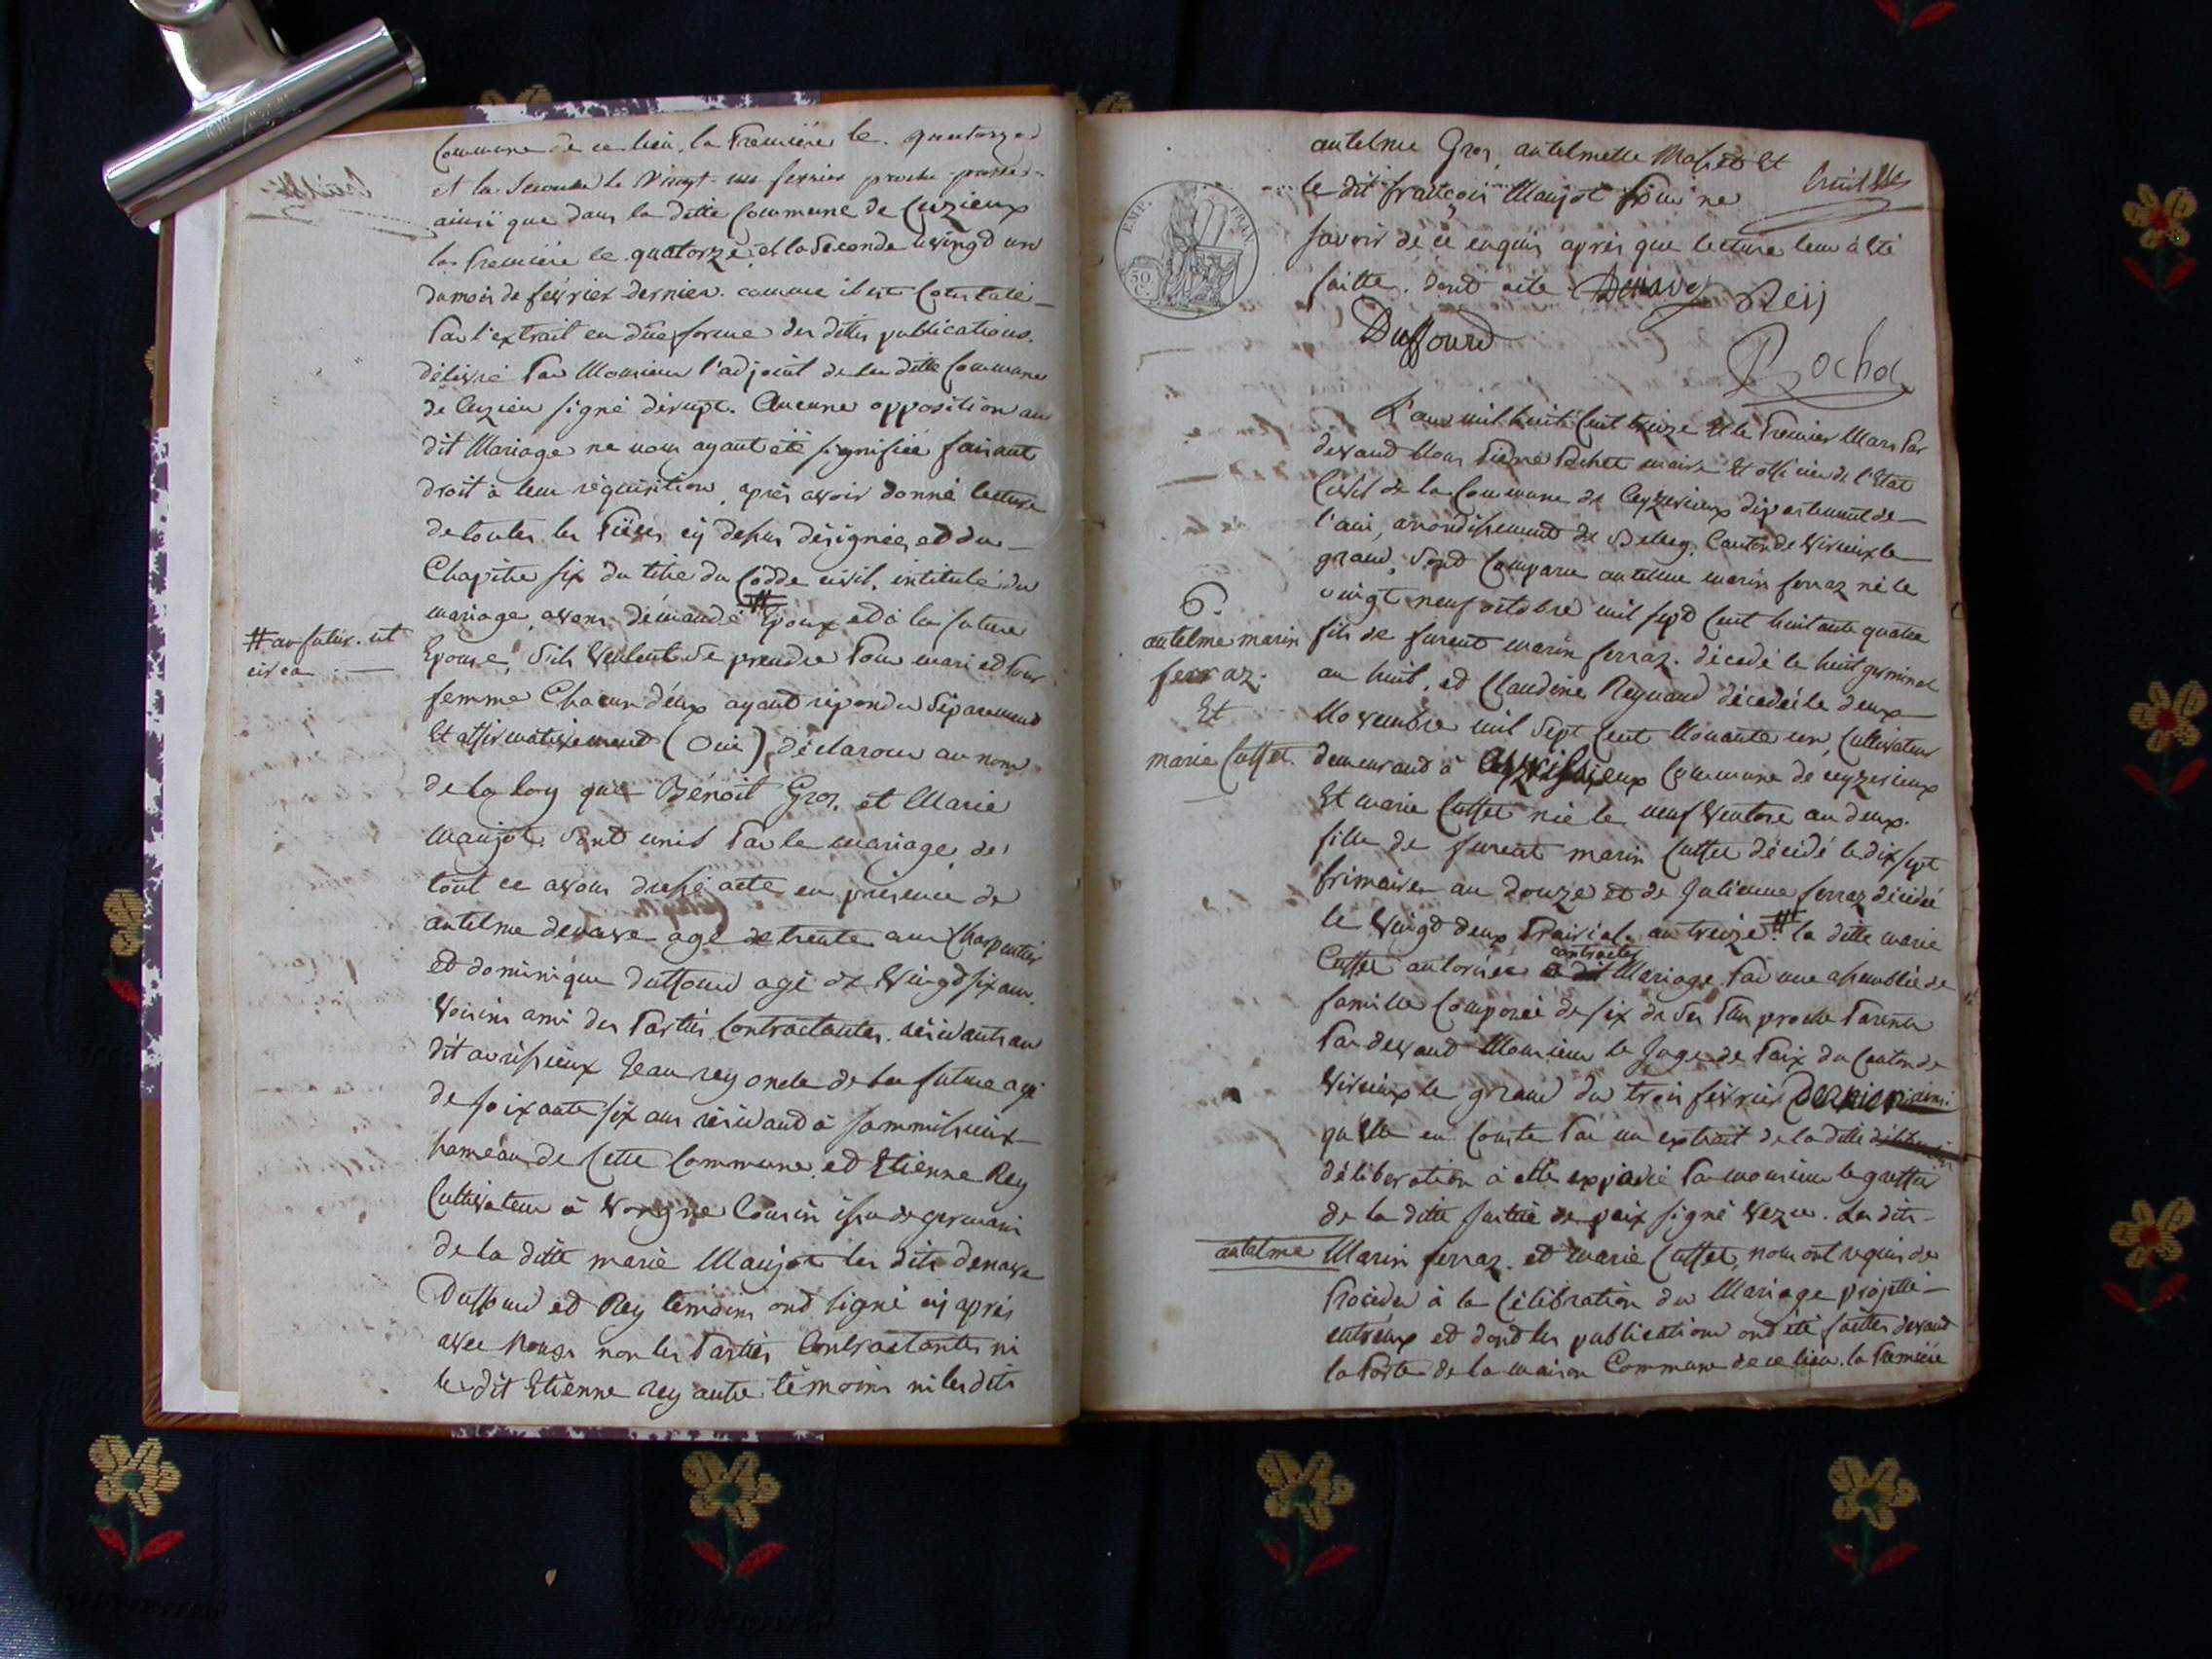 Commune de ce lieu, la Premiere le quatorze
et la Seconde le Vingt un fevrier proche passé
ainsi que dans la ditte Commune de Cuzieux
la premiere le quatorze, et la Seconde le vingt un
du mois de fevrier dernier. comme il est Constaté
Par l'extrait en düe forme des dittes publications.
délivré Par Monsieur l'adjoint de la ditte Commune
de Cuzieu signé Aucune opposition au
dit Mariage ne nous ayant été signifiée faisant
droit à leur réquisition, après avoir donné lecture
de toutes les Pièces cy dessus désignées et du
Chapitre six du titre du Codde civil, intitulé du
mariage, avons démandé # Epoux et à la future
#au futur
Epouse, S'ils Veulent Se prendre Pour mari et Pour
femme Chacun d'eux ayant répondu Séparement
Et affirmativement (Oui) déclarons au nom
de la loy que Bénoit Gros, et Marie
maujot Sont unis Par le mariage, de
tout ce avons dressé acte en présence de
antelme denave agé de trente ans Charpentier
et dominique duffourd agé de Vingt six ans
Voisins ami des Parties Contractantes résidants au
dit avrissieux Jean rey oncle de la future agé
de soixante six ans résidand à
hameau de Cette Commune, et Etienne Rey
Cultivateur à Vongne Cousin issu de germain
de la ditte marie Maujot les dits denave
Duffourd et Rey témoins ont signé cy après
avec Nous, non les Parties Contractantes ni
le dit Etienne rey autre témoins ni les dits
antelme Gros, antelmette et
le dit françois Maujot Pour ne
savoir de ce enquis après que lecture leur à été
faitte. dont acte. Denave Reij
Duffourd
Rochet
L'an mil huit Cent treize Et le Premier Mars Par
devand Nous Pierre Rochet maire Et officier de l'Etat
Civil de la Commune de Ceyzerieux département de
l'ain, arrondissement de Belley, Canton de Virieux le
grand, Sont Comparu antelme marin ferraz né le
vingt neuf octobre mil sept Cent huitante quatre
6.
antelme marin
ferraz.
Et
marie Cuffet
fils de furent marin ferraz. décedé le huit germinal
an huit, et Claudine Reynaud décedée le deux
Novembre mil Sept Cent Nonante un, Cultivateur
demeurand à Commune de ceyzerieux
Et marie Cuffet née le neuf Ventose an deux.
fille de furent marin Cuffet décédé le dix sept
frimaire an douze et de Julienne ferraz décédée
le Vingt deux Prairial an treize # la ditte marie
Cuffet autorisée contracter Mariage Par une assemblée de
famille Composée de six de Ses Plus proche Parents
Par devand Monsieur le Juge de Paix du Canton de
Virieux le grand du trois février Dernier ainsi
qu'elle en Conste Par un extrait de la ditte
déliberation à elle expédié Par monsieur le greffier
de la ditte Justice de paix signé Vezu. Les dits
antelme Marin ferraz. et marie Cuffet, nous ont requis de
Procéder à la Célébration du Mariage projetté
entreux et dond les publications ont été faittes devand
la Porte de la maison Commune de ce lieu. la Premiere
EMP. FRAN
50 C.